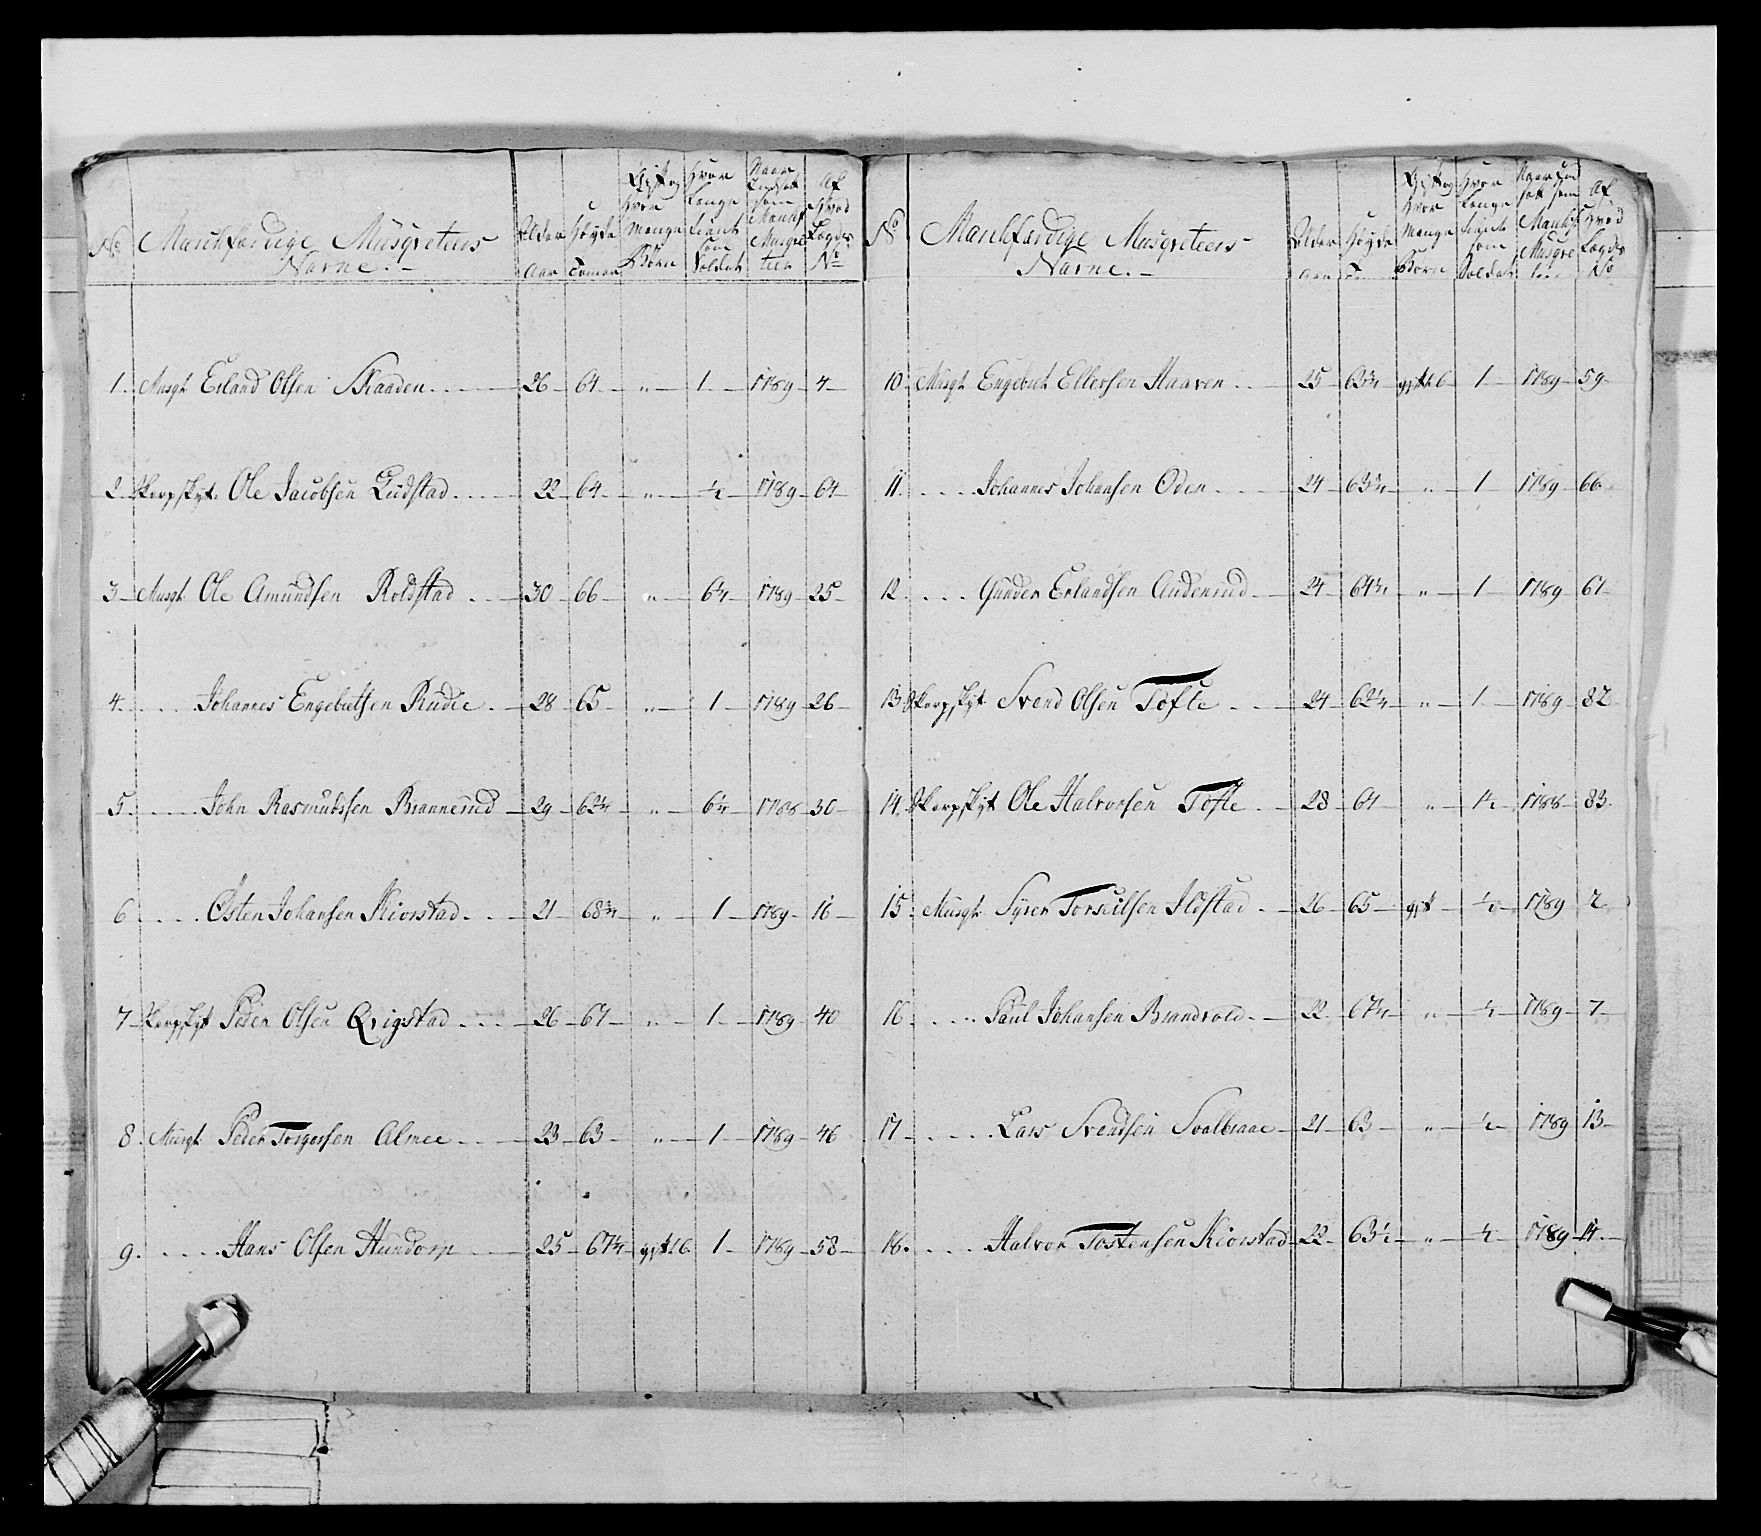 No
Marchfærdige Musqveteers
Navne.
Alder
Aar
Høyde
Tomer
Gift og
hvor
Mange
Børn
Hvor
Længe
tient
som
Soldat
Naar
Indsat
som
Marchf
Musqve
teer
Af
hvad
Lægds
No
1. Musqt. Erland Olsen Skaaden 26 64 „ 1 1789 4
2 Skarpskyt. Ole Jacobsen Lüdstad 22 64 „ ½ 1789 64
3 Musqt. Ole Amundsen Roldstad 30 66 „ 6¼ 1789 25
4. Johannes Engebretsen Rudie 28 65 „ 1 1789 26
5. John Rasmussen Brannerud 29 62¼ „ 6¼ 1788 30
6 Østen Johansen Kiorstad 21 68¾ „ 1 1789 16
7 Skarpskyt Peder Olsen Qvigstad 26 67 „ 1 1789 40
8. Musqt. Peder Torgersen Almee 23 63 „ 1 1789 46
9. Hans Olsen Hundorp 25 67¼ gift 1 b 1 1789 58
No
Marchfærdige Musqveteers
Navne.
Alder
Aar
Høyde
Gift og
hvor
Mange
Børn
Hvor
Længe
tient
som
Soldat
Naar Ind
sat som
Marchf
Musqve
teer
Af
hvad
Lægds
No
10. Musqt. Engebret Ellefsen Haaven 25 63¾ gift 1 b 1 1789 59
11. Johannes Johansen Oden 24 63¾ „ 1 1789 66
12. Gunder Erlandsen Audenrud 24 64¾ „ 1 1789 67
13 Skarpskyt Svend Olsen Tofte 24 62¼ „ 1 1789 82
14. Skarpskyt Ole Halvorsen Tofte 28 64 „ 1½ 1788 83
15. Musqt. Syver Torkildsen Ildstad 26 65 gift ½ 1789 2
16. Paul Johansen Brandvold 22 67¼ „ ½ 1789 7
17 Lars Svendsen Svalbraae 21 63 „ ½ 1789 13
18. Halvor Tostensen Kiorstad 22 63½ „ ½ 1789 14